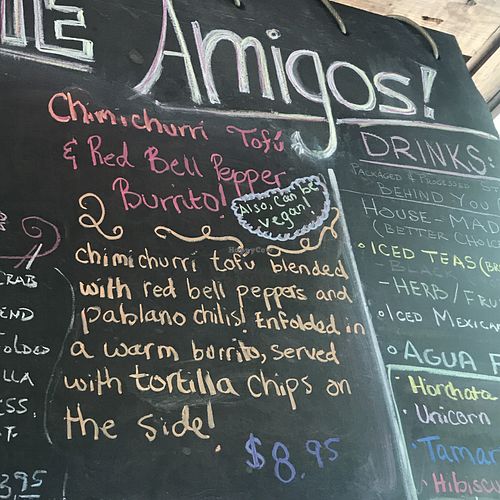 Amigos!
Chimichurri Tofú
& Red Bell Pepper
Burrito!
Also, Can be
vegan!
chimichurri tofú blended
with red bell peppers and
pablano chilis! Enfolded in
a warm burrito, served
with tortilla chips on
the side!
$8.95
CRAB
3.95
DRINKS:
BEHIND YOU
HOUSE-MAD
(BETTER CHOI
ICED TEAS (B
- BLAC
- HERB/FRU
ICED MEXICA
AGUA F
Horchata
Unicorn
Tamar
Hibiscu